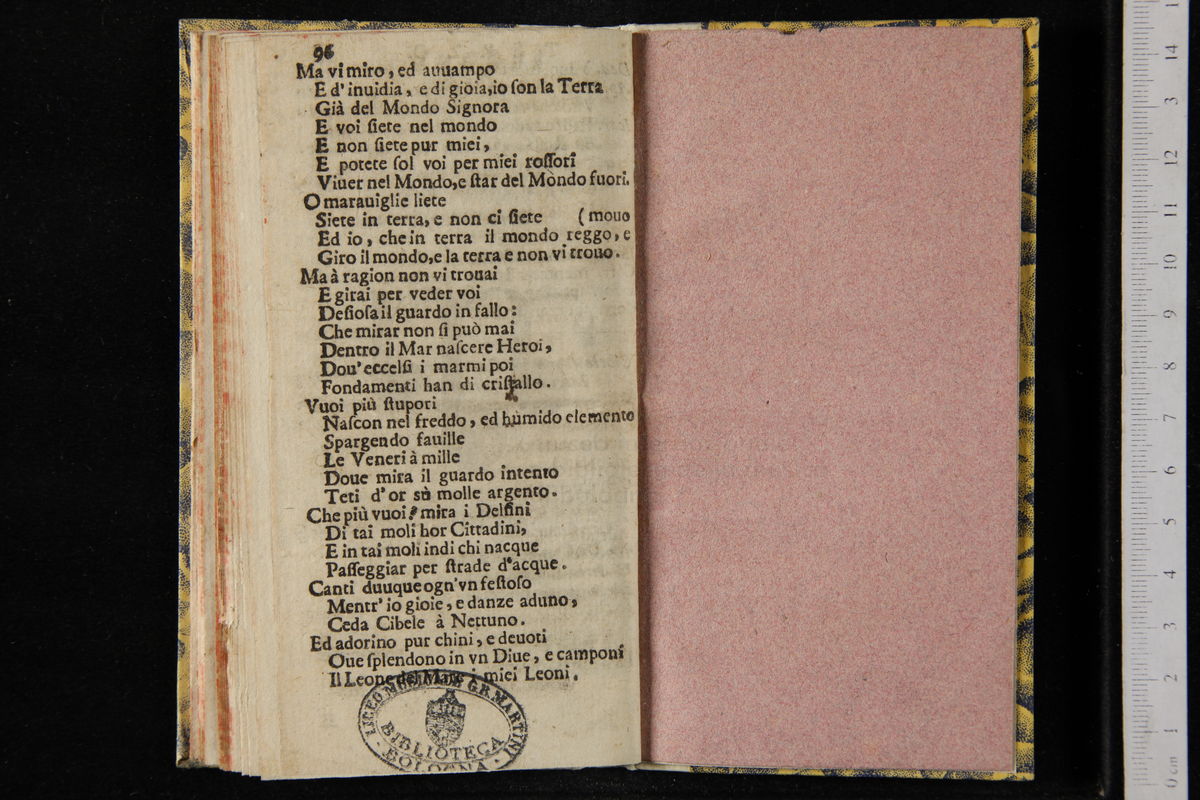 96
Ma vi miro, ed auuampo
E d'inuidia, e di gioia, io ſon la Terra
Già del Mondo Signora
E voi ſiete nel mondo
E non ſiete pur miei,
E potete ſol voi per miei roſſori
Viuer nel Mondo, e ſtar del Mondo fuori.
O marauiglie liete
Siete in terra, e non ci ſiete (mouo
Ed io, che in terra il mondo reggo, e
Giro il mondo, e la terra e non vi trouo.
Ma à ragion non vi trouai
E girai per veder voi
Deſioſa il guardo in fallo:
Che mirar non ſi può mai
Dentro il Mar naſcere Heroi,
Dou' eccelſi i marmi poi
Fondamenti han di criſtallo.
Vuoi più ſtupori
Naſcon nel freddo, ed humido elemento
Spargendo fauille
Le Veneri à mille
Doue mira il guardo intento
Teti d'or sù molle argento.
Che più vuoi? mira i Delfini
Di tai moli hor Cittadini,
E in tai moli indi chi nacque
Paſſeggiar per ſtrade d'acque.
Canti duuque ogn'vn feſtoſo
Mentr' io gioie, e danze aduno,
Ceda Cibele à Nettuno.
Ed adorino pur chini, e deuoti
Oue ſplendono in vn Diue, e camponi
Il Leone del Mare i miei Leoni.
LICEO MUSICALE G.B. MARTINI
BIBLIOTECA
BOLOGNA
0 cm 1 2 3 4 5 6 7 8 9 10 11 12 3 14